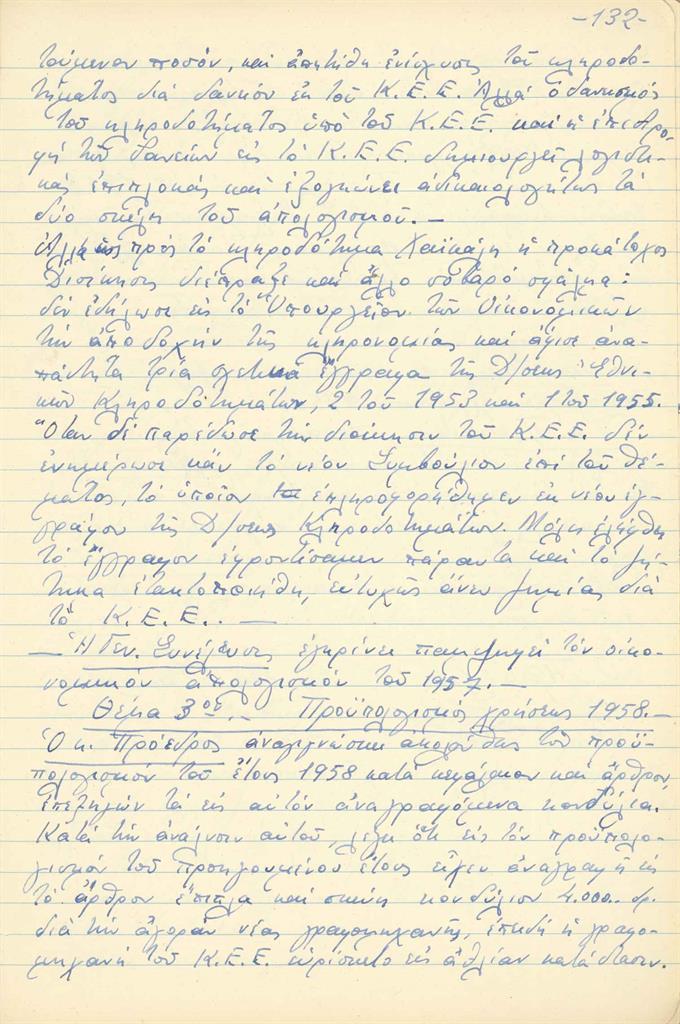 -132-
τούμενον ποσόν, καὶ ἐπετεύχθη ἐνίσχυσις τοῦ κληροδο-
τήματος διὰ δανείων ἐκ τοῦ Κ.Ε.Ε. Ἀλλὰ ὁ δανεισμός
τοῦ κληροδοτήματος ὑπὸ τοῦ Κ.Ε.Ε. καὶ ἡ ἐπιστρο-
φὴ τῶν δανείων εἰς τὸ Κ.Ε.Ε. δημιουργεῖ λογιστι-
κὰς ἐπιπλοκὰς καὶ ἐξογκώνει ἀδικαιολογήτως τὰ
δύο σκέλη τοῦ ἀπολογισμοῦ.—
Ἀλλὰ ὡς πρὸς τὸ κληροδότημα Χαϊκάλη ἡ προκάτοχος
Διοίκησις διέπραξε καὶ ἄλλο σοβαρὸ σφάλμα:
δὲν ἐδήλωσε εἰς τὸ Ὑπουργεῖον τῶν Οἰκονομικῶν
τὴν ἀποδοχὴν τῆς κληρονομίας καὶ ἄφισε ἀνα-
πάντητα τρία σχετικὰ ἔγγραφα τῆς Δ/σεως Ἐθνι-
κῶν Κληροδοτημάτων, 2 τοῦ 1953 καὶ 1 τοῦ 1955.
Ὅταν δὲ παρέδωσε τὴν διοίκησιν τοῦ Κ.Ε.Ε. δὲν
ἐνημέρωσε κἂν τὸ νέον Συμβούλιον ἐπὶ τοῦ θέ-
ματος, τὸ ὁποῖον ἐπληροφορήθημεν ἐκ νέου ἐγ-
γράφου τῆς Δ/σεως Κληροδοτημάτων. Μόλις ἐλήφθη
τὸ ἔγγραφον ἐφροντίσαμεν πάραυτα καὶ τὸ ζή-
τημα ἐτακτοποιήθη, εὐτυχῶς ἄνευ ζημίας διὰ
τὸ Κ.Ε.Ε..—
— Ἡ Γεν. Συνέλευσις ἐγκρίνει παμψηφεὶ τὸν οἰκο-
νομικὸν ἀπολογισμὸν τοῦ 1957.—
Θέμα 3ον.— Προϋπολογισμὸς χρήσεως 1958.—
Ὁ κ. Πρόεδρος ἀναγιγνώσκει ἀκολούθως τὸν προϋ-
πολογισμὸν τοῦ ἔτους 1958 κατὰ κεφάλαιον καὶ ἄρθρον,
ἐπεξηγῶν τὰ εἰς αὐτὸν ἀναγραφόμενα κονδύλια.
Κατὰ τὴν ἀνάλυσιν αὐτοῦ, λέγει ὅτι εἰς τὸν προϋπολο-
γισμὸν τοῦ προηγουμένου ἔτους εἶχεν ἀναγραφῆ εἰς
τὸ ἄρθρον ἔπιπλα καὶ σκεύη κονδύλιον 4.000.. δρ.
διὰ τὴν ἀγορὰν νέας γραφομηχανῆς, ἐπειδὴ ἡ γραφο-
μηχανὴ τοῦ Κ.Ε.Ε. εὑρίσκετο εἰς ἀθλίαν κατάστασιν.